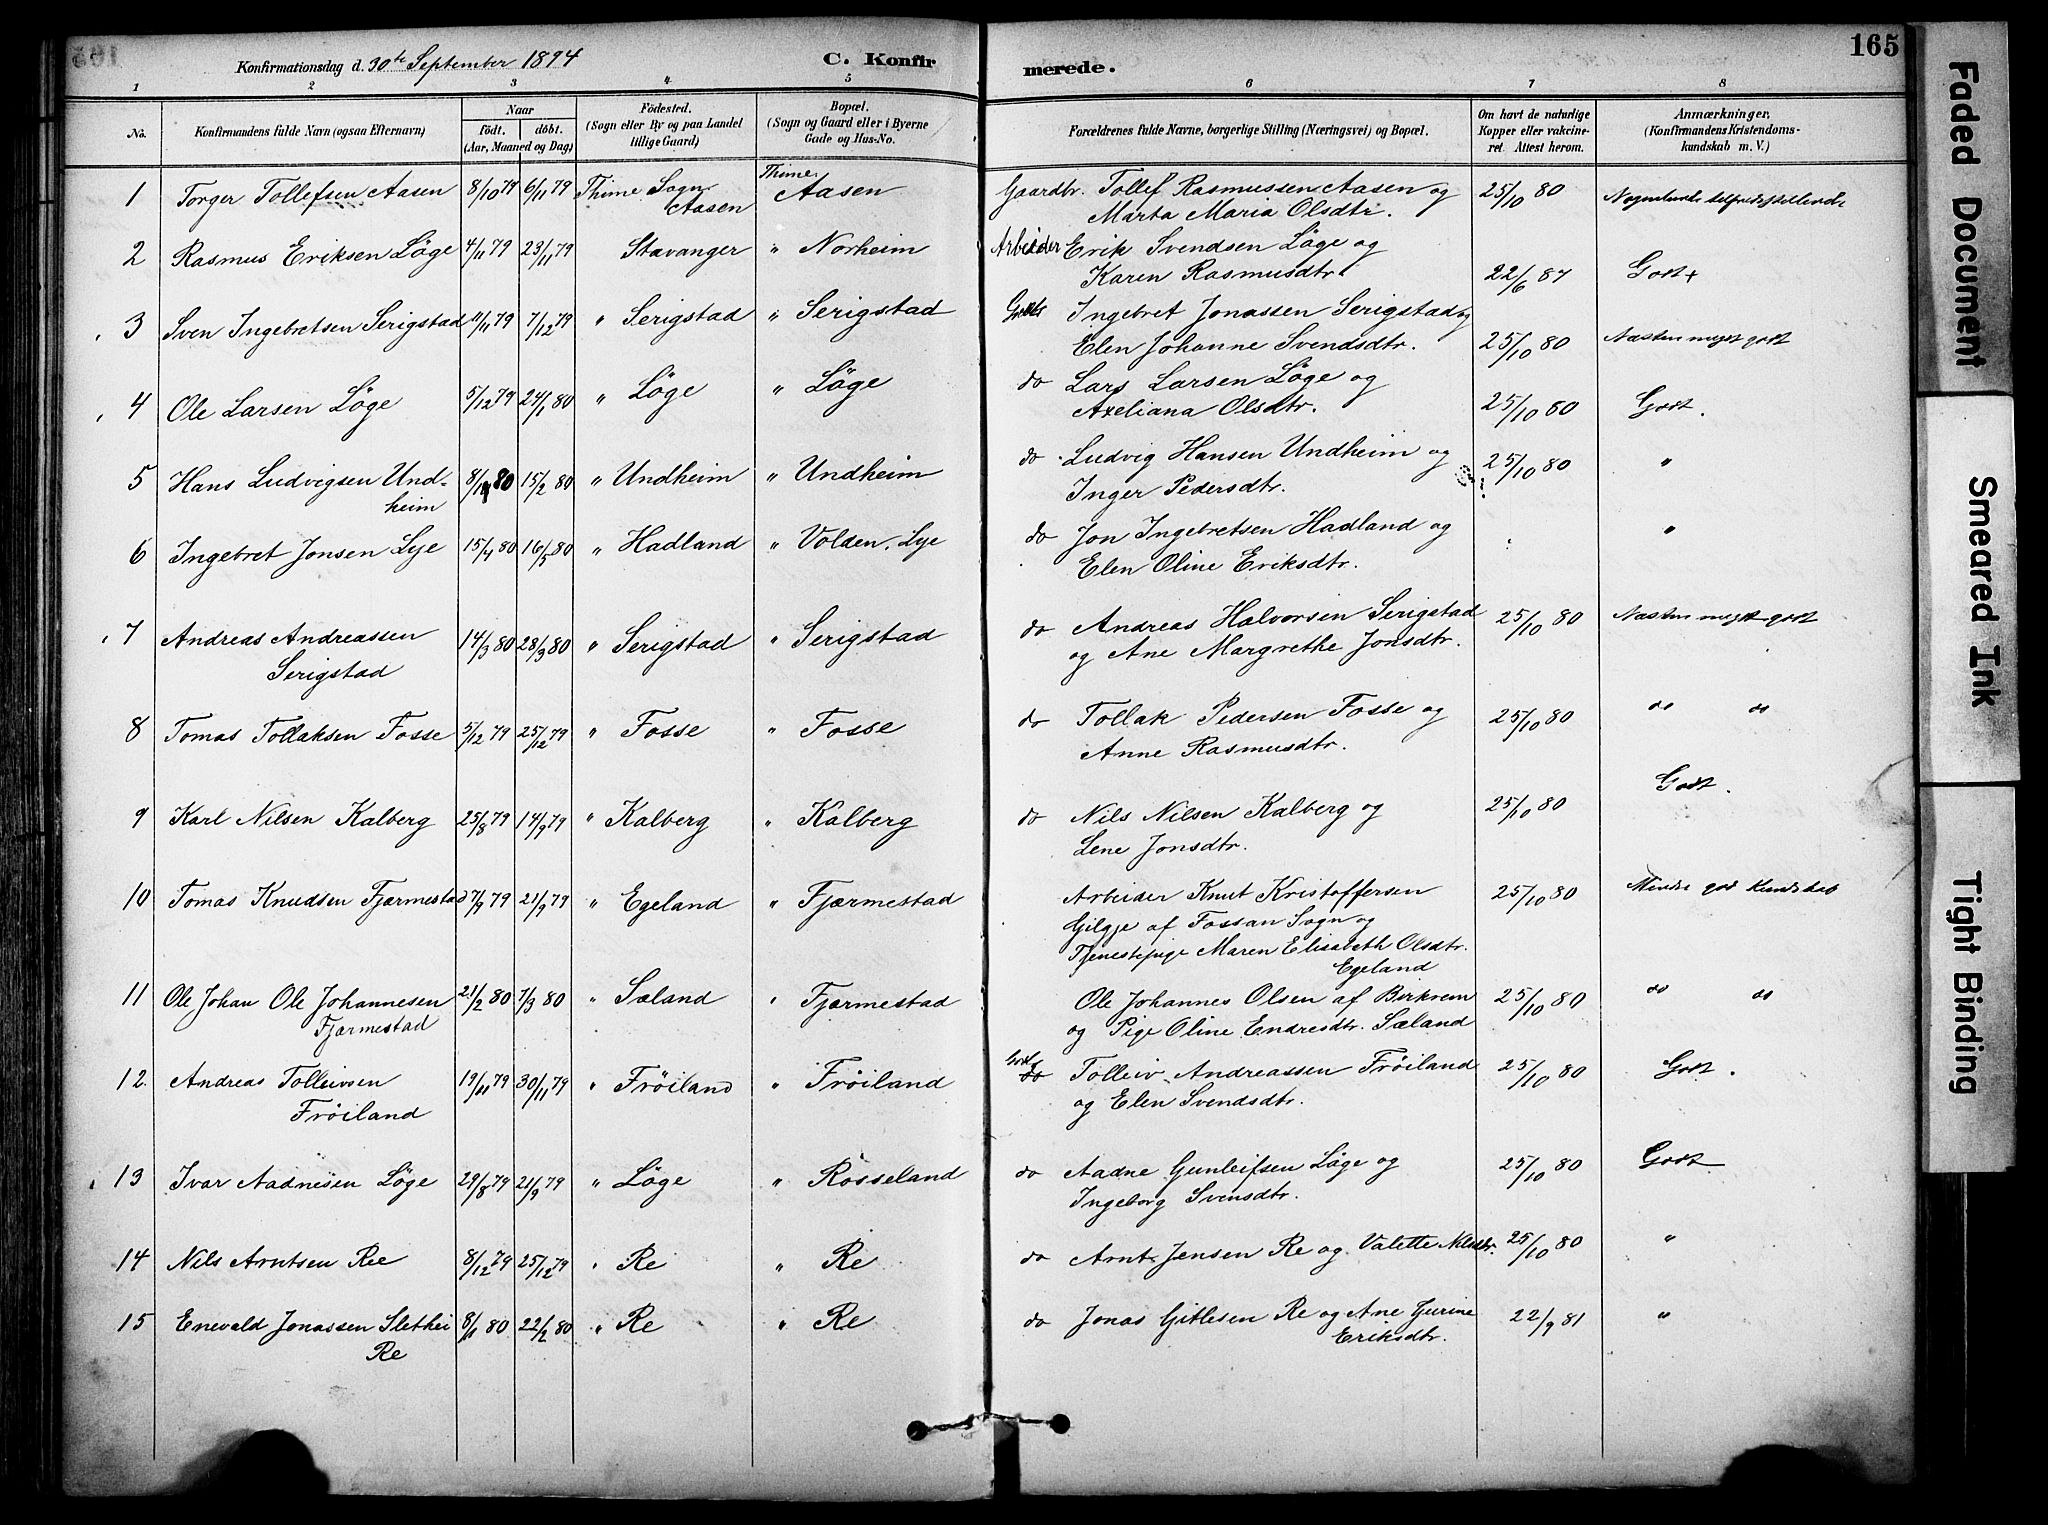 Konfirmationsdag d. 30te September 1894
C. Konfirmerede.
165
1 2 3 4 5 6 7 8
No.
Konfirmandens fulde Navn (ogsaa Efternavn)
Naar
födt. döbt.
(Aar, Maaned og Dag)
Födested.
(Sogn eller By og paa Landet tillige Gaard)
Bopæl.
(Sogn og Gaard eller i Byerne Gade og Hus-No.
Forældrenes fulde Navne, borgerlige Stilling (Næringsvei) og Bopæl.
Om havt de naturlige Kopper eller vakcineret. Attest herom.
Anmærkninger.
(Konfirmandens Kristendomskundskab m. V.)
1 Torger Tollefsen Aasen 8/10 79 6/11 79 Thime Sogn Aasen Thime Aasen Gaardbr. Tollef Rasmussen Aasen og
Marta Maria Olsdtr. 25/10 80 Nogenlunde tilfredsstillende
2 Rasmus Eriksen Löge 4/11 79 23/11 79 Stavanger " Norheim Arbeider Erik Svendsen Löge og
Karen Rasmusdtr 22/6 87 Godt
3 Sven Ingebretsen Serigstad 11/11 79 7/12 79 " Serigstad " Serigstad Grdbr Ingebret Jonassen Serigstad og
Elen Johanne Svendsdtr. 25/10 80 Næsten meget godt
4 Ole Larsen Löge 5/12 79 24/1 80 " Löge " Löge do Lars Larsen Löge og
Axeliana Olsdtr. 25/10 80 Godt.
5 Hans Ludvigsen Undheim 8/1 80 15/2 80 " Undheim " Undheim do Ludvig Hansen Undheim og
Inger Pedersdtr. 25/10 80 "
6 Ingebret Jonsen Lye 15/4 80 16/5 80 " Hadland " Volden, Lye do Jon Ingebretsen Hadland og
Elen Oline Eriksdtr. "
7 Andreas Andreassen
Serigstad 14/3 80 28/3 80 " Serigstad " Serigstad do Andreas Halvorsen Serigstad
og Ane Margrethe Jonsdtr. 25/10 80 Næsten meget godt
8 Tomas Tollaksen Fosse 5/12 79 25/12 79 " Fosse " Fosse do Tollak Pedersen Fosse og
Anne Rasmusdtr. 25/10 80 do do
9 Karl Nilsen Kalberg 25/8 79 14/9 79 " Kalberg " Kalberg do Nils Nilsen Kalberg og
Lene Jonsdtr. 25/10 80 Godt.
10 Tomas Knudsen Fjærmestad 7/9 79 21/9 79 " Egeland " Fjærmestad Arbeider Knut Kristoffersen
Gilgje af Fossan Sogn og
Tjenestepige Maren Elisabeth Olsdtr.
Egeland 25/10 80 Mindre god Kundskab
11 Ole Johan Ole Johannesen
Fjærmestad 21/2 80 7/3 80 " Sæland " Fjærmestad Ole Johannes Olsen af Birkrem
og Pige Oline Endresdtr. Sæland 25/10 80 do do
12. Andreas Tolleivsen
Fröiland 19/11 79 30/11 79 " Fröiland " Fröiland do Tolleiv Andreassen Fröiland
og Elen Svendsdtr. 25/10 80 Godt.
13 Ivar Aadnesen Löge 29/8 79 21/9 79 " Löge " Rosseland do Aadne Gunleifsen Löge og
Ingeborg Svensdtr. 25/10 80 Godt
14 Nils Arntsen Ree 8/12 79 25/12 79 " Re " Re do Arnt Jensen Re og Valette Nilsdtr. 25/10 80 "
15 Enevald Jonassen Slethei
Re 8/1 80 22/2 80 " Re " Re do Jonas Gitlesen Re og Ane Gurine
Eriksdtr. 22/9 81 "
Faded Document
Smeared Ink
Tight Binding